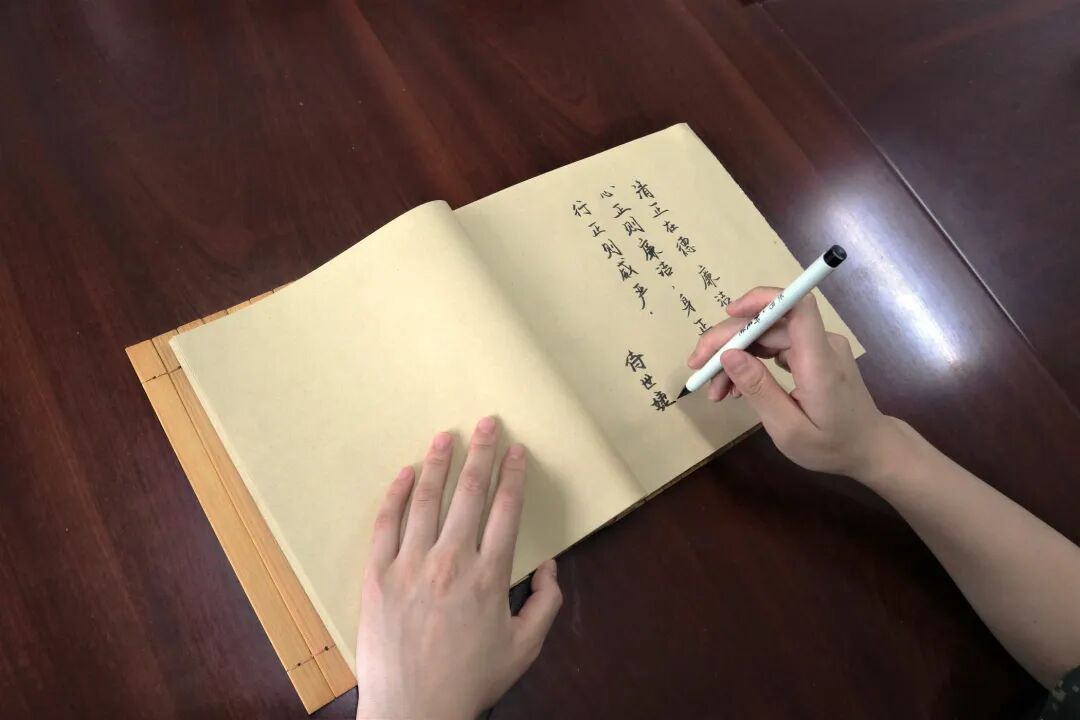 清正在德 廉洁
心正则廉洁，身正
行正则威严.
侍世婕